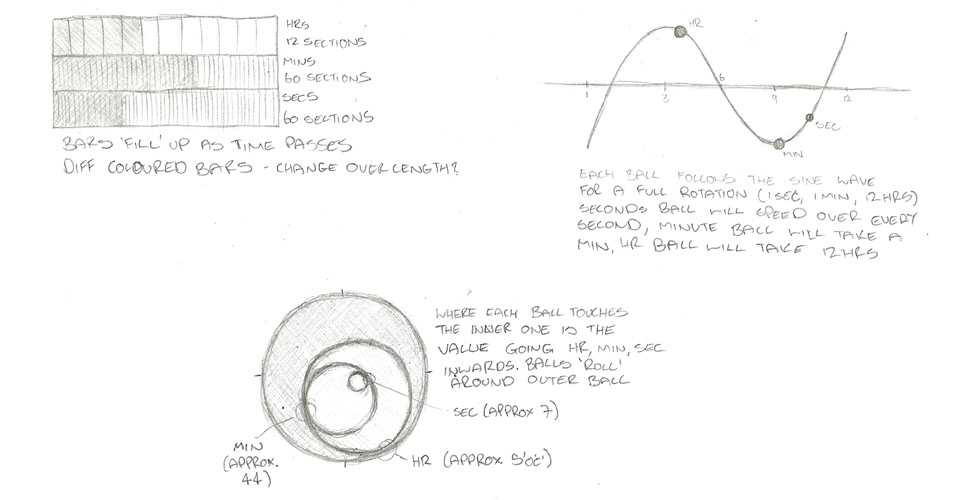 HRS
12 SECTIONS
MINS
60 SECTIONS
SECS
60 SECTIONS
BARS 'FILL' UP AS TIME PASSES
DIFF COLOURED BARS - CHANGE OVER LENGTH?
HR
1
3
6
9
12
SEC
MIN
EACH BALL FOLLOWS THE SINE WAVE
FOR A FULL ROTATION (1SEC, 1MIN, 12HRS)
SECONDS BALL WILL SPEED OVER EVERY
SECOND, MINUTE BALL WILL TAKE A
MIN, HR BALL WILL TAKE 12HRS
WHERE EACH BALL TOUCHES
THE INNER ONE IS THE
VALUE GOING HR, MIN, SEC
INWARDS. BALLS 'ROLL'
AROUND OUTER BALL
SEC (APPROX 7)
MIN
(APPROX.
44)
HR (APPROX 5'OC')